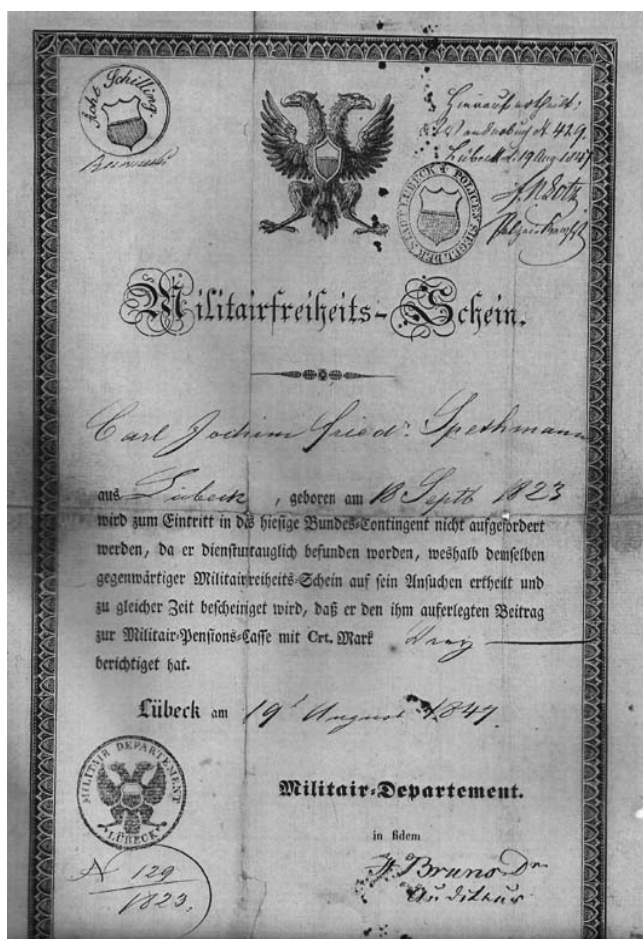 Acht Schilling.
Hierauf ertheilt:
Wanderbuch N 429.
Lübeck d. 19 Aug 1847
POLICEY SIEGEL DER STADT LÜBECK
Militairfreiheits-Schein.
Carl Jochim Friedr. Spethmann
aus Lübeck, geboren am 18 Septb 1823
wird zum Eintritt in das hiesige Bundes-Contingent nicht aufgefordert
werden, da er dienstuntauglich befunden worden, weshalb demselben
gegenwärtiger Militairfreiheits-Schein auf sein Ansuchen ertheilt und
zu gleicher Zeit bescheiniget wird, daß er den ihm auferlegten Beitrag
zur Militair-Pensions-Casse mit Crt. Mark Drey
berichtiget hat.
Lübeck am 19t August 1847.
MILITAIR DEPARTEMENT
LÜBECK
Militair-Departement.
in fidem
Bruno Dr
Auditeur
N 129
1823.